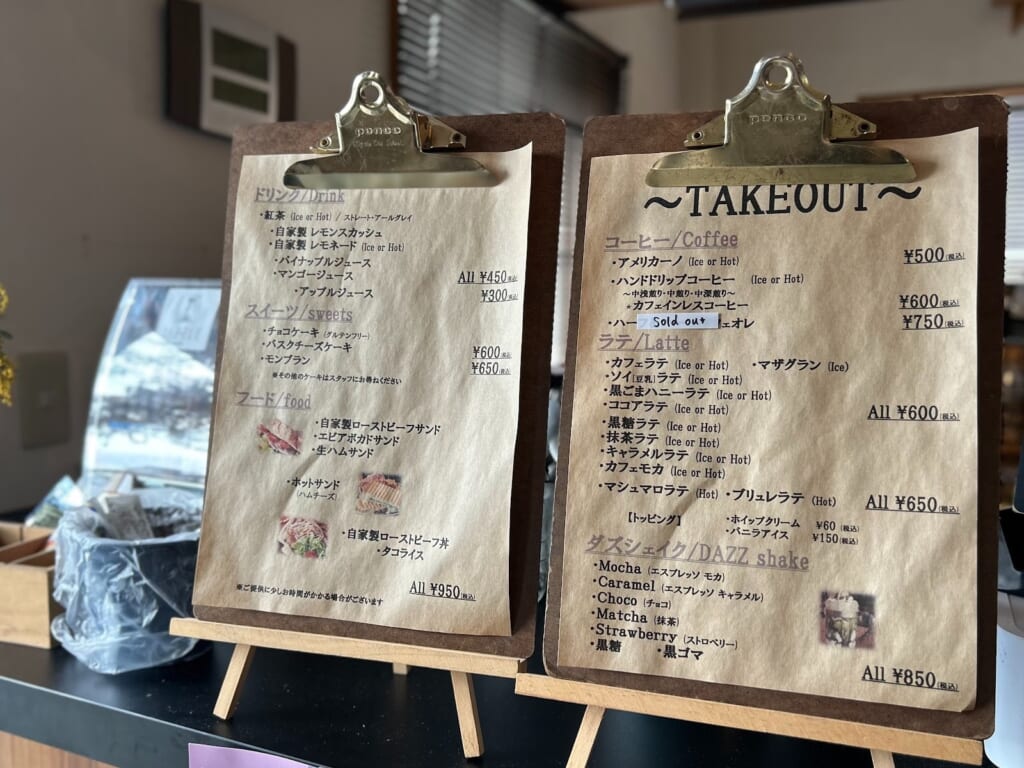 penco
ドリンク/Drink
・紅茶 (Ice or Hot) / ストレート・アールグレイ
・自家製 レモンスカッシュ
・自家製 レモネード (Ice or Hot)
・パイナップルジュース
・マンゴージュース All ¥450(税込)
・アップルジュース ¥300(税込)
スイーツ/sweets
・チョコケーキ (グルテンフリー)
・バスクチーズケーキ ¥600(税込)
・モンブラン ¥650(税込)
※その他のケーキはスタッフにお尋ねください
フード/food
・自家製ローストビーフサンド
・エビアボカドサンド
・生ハムサンド
・ホットサンド
(ハムチーズ)
・自家製ローストビーフ丼
・タコライス
All ¥950(税込)
※ご提供に少しお時間がかかる場合がございます
penco
～TAKEOUT～
コーヒー/Coffee
・アメリカーノ (Ice or Hot) ¥500(税込)
・ハンドドリップコーヒー (Ice or Hot)
～中浅煎り・中煎り・中深煎り～
+カフェインレスコーヒー ¥600(税込)
・ハー Sold out ェオレ ¥750(税込)
ラテ/Latte
・カフェラテ (Ice or Hot) ・マザグラン (Ice)
・ソイ[豆乳]ラテ (Ice or Hot)
・黒ごまハニーラテ (Ice or Hot)
・ココアラテ (Ice or Hot) All ¥600(税込)
・黒糖ラテ (Ice or Hot)
・抹茶ラテ (Ice or Hot)
・キャラメルラテ (Ice or Hot)
・カフェモカ (Ice or Hot)
・マシュマロラテ (Hot) ・ブリュレラテ (Hot) All ¥650(税込)
【トッピング】 ・ホイップクリーム ¥60 (税込)
・バニラアイス ¥150(税込)
ダズシェイク/DAZZ shake
・Mocha (エスプレッソ モカ)
・Caramel (エスプレッソ キャラメル)
・Choco (チョコ)
・Matcha (抹茶)
・Strawberry (ストロベリー)
・黒糖 ・黒ゴマ
All ¥850(税込)